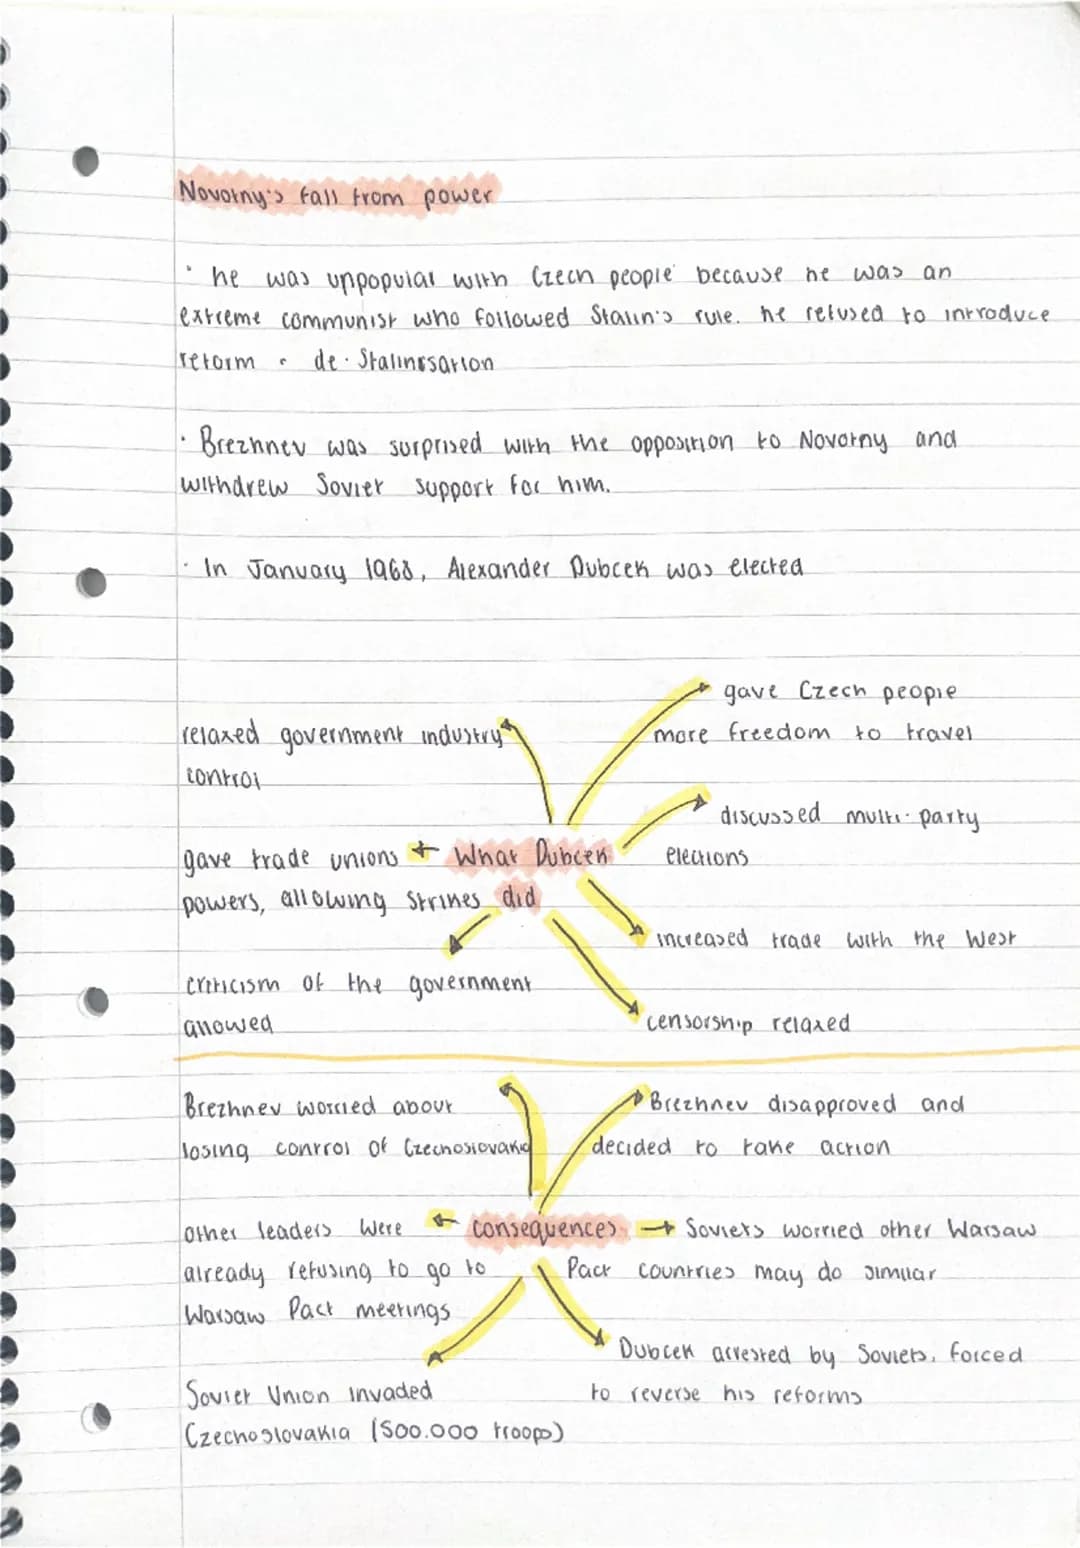 Novotny's fall from power
· he was unpopular with Czech people because he was an
extreme communist who followed Stalin's rule. he refused to introduce
reform · de-Stalinisation
· Brezhnev was surprised with the opposition to Novotny and
withdrew Soviet support for him.
· In January 1968, Alexander Dubcek was elected
relaxed government industry
control
gave Czech people
more freedom to travel
discussed multi-party
elections
gave trade unions
powers, allowing strikes
What Dubcek
did
increased trade with the West
criticism of the government
allowed
censorship relaxed
Brezhnev worried about
losing control of Czechoslovakia
Brezhnev disapproved and
decided to take action
other leaders were
already refusing to go to
Warsaw Pact meetings
consequences
Soviets worried other Warsaw
Pact countries may do similar
Soviet Union invaded
Czechoslovakia (500.000 troops)
Dubcek arrested by Soviets, forced
to reverse his reforms